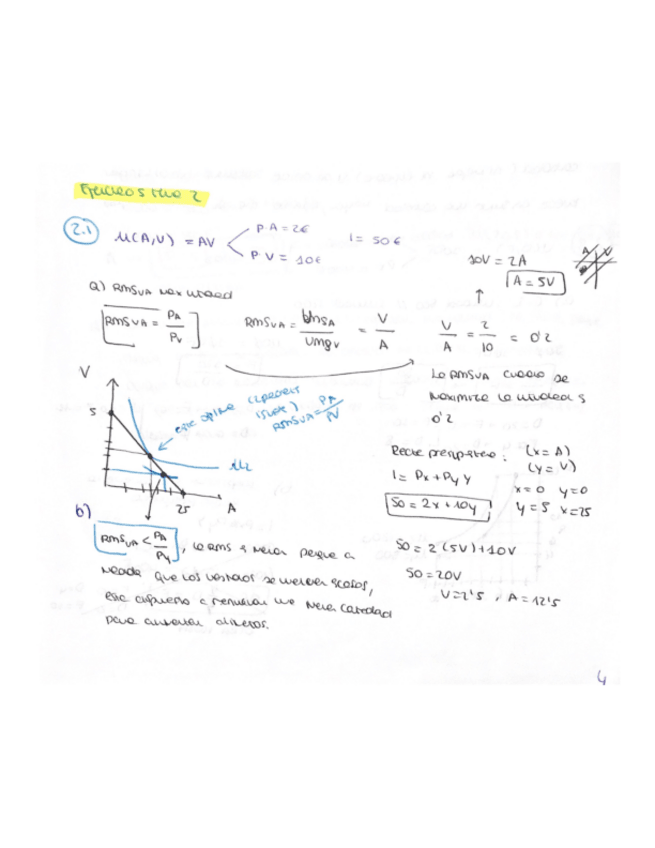 Ejercicios Tema 2
2.1 U(A,V) = AV
PA = 2€
PV = 10€
I = 50€
a) RMSVA max utilidad
RMSVA = PA/PV
RMSVA = UMgA/UMgV = V/A
V/A = 2/10 = 0'2
10V = 2A
A = 5V
A V
La RMSVA cuando se
maximiza la utilidad es
0'2
V
5
25
A
este óptimo
RMSVA = PA/PV
Recta presupuestaria: (x = A)
(y = V)
I = Px + Py y
x=0 y=0
50 = 2x + 10y
y=5 x=25
b)
RMSVA < PA/PV, la RMS es menor porque a
medida que los vestidos se vuelven escasos,
está dispuesto a renunciar una menor cantidad
para aumentar alimentos.
50 = 2(5V)+10V
50 = 20V
V=2'5, A=12'5
4